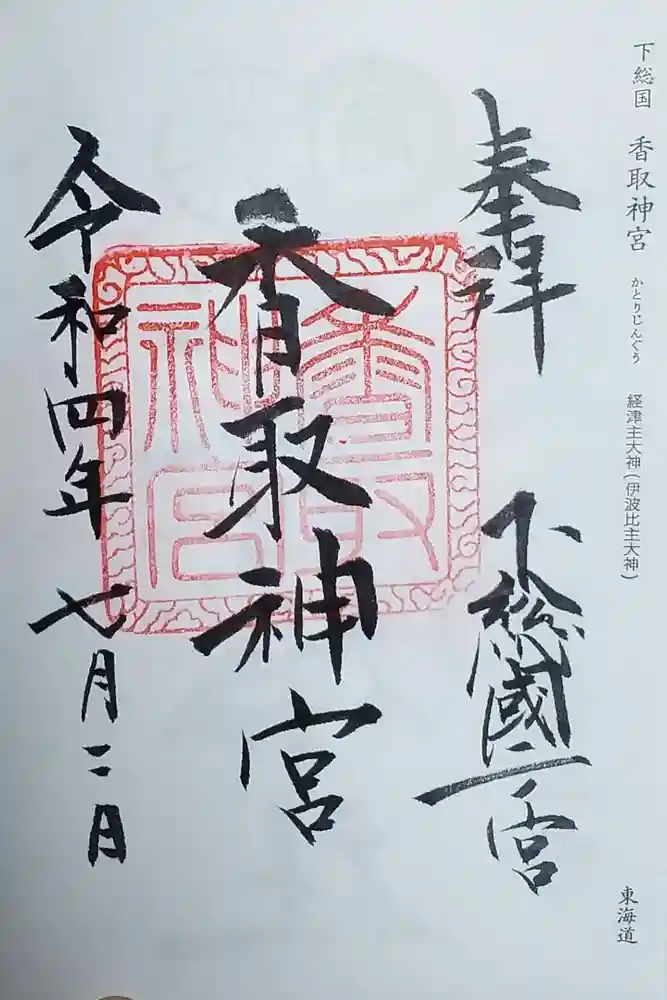 下総国 香取神宮 かとりじんぐう 経津主大神(伊波比主大神) 東海道
奉拝 下総國一之宮
香取神宮
香取神宮
令和四年 七月二日